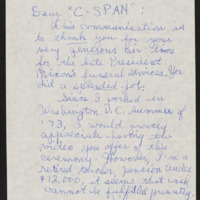 Dear "C-SPAN":
This communication is
to thank you for your
very generous air time
for the late President
Nixon's funeral services. You
did a splendid job.
Since I worked in
Washington D.C. summer of
'73, I would greatly
appreciate having the
video you offer of this
ceremony. However, I'm a
retired teacher pension under
$12,000, it seems that wish
cannot be fulfilled presently.